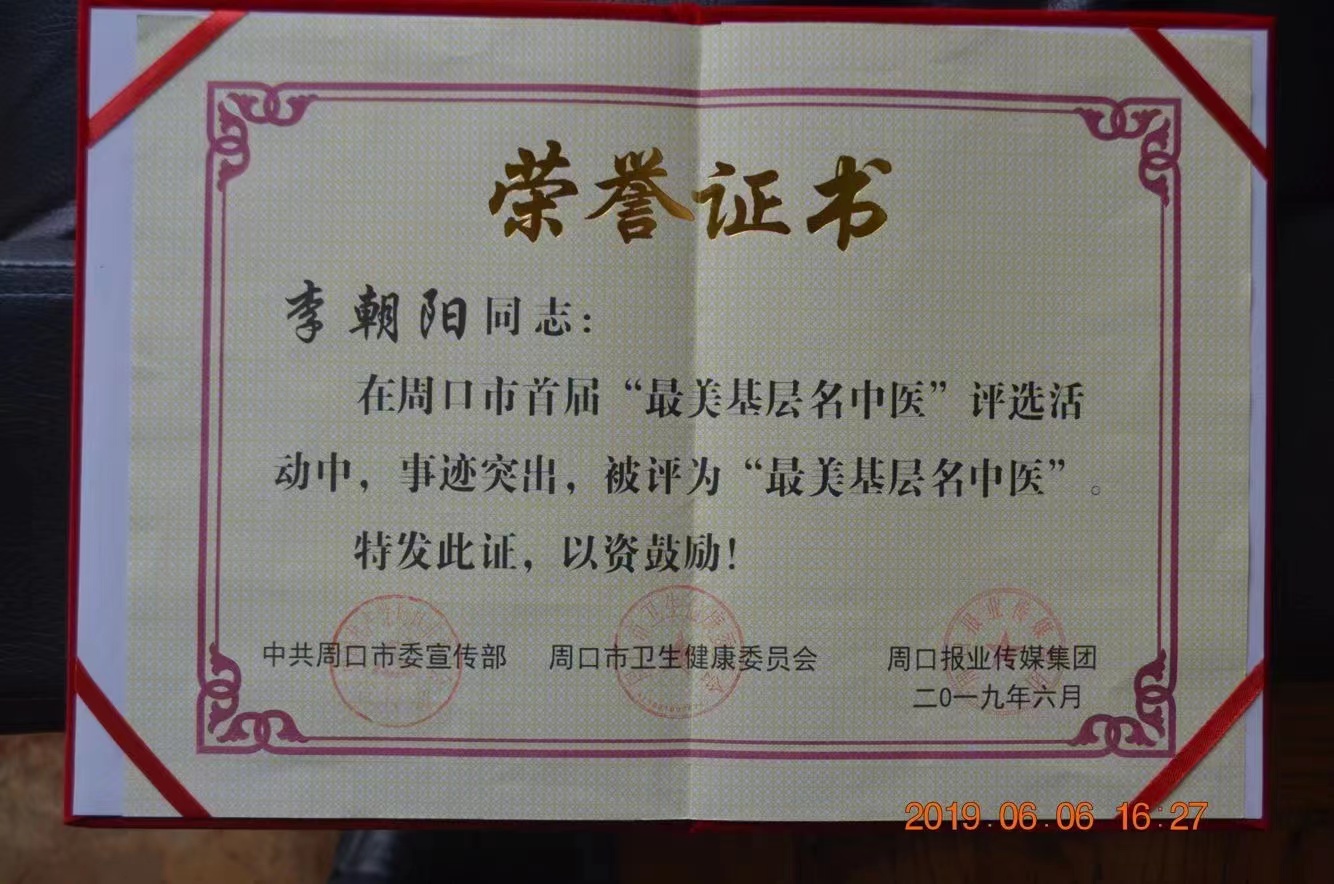 荣誉证书
李朝阳同志：
在周口市首届“最美基层名中医”评选活
动中，事迹突出，被评为“最美基层名中医”。
特发此证，以资鼓励！
中共周口市委宣传部 周口市卫生健康委员会 周口报业传媒集团
二0一九年六月
2019.06.06 16:27